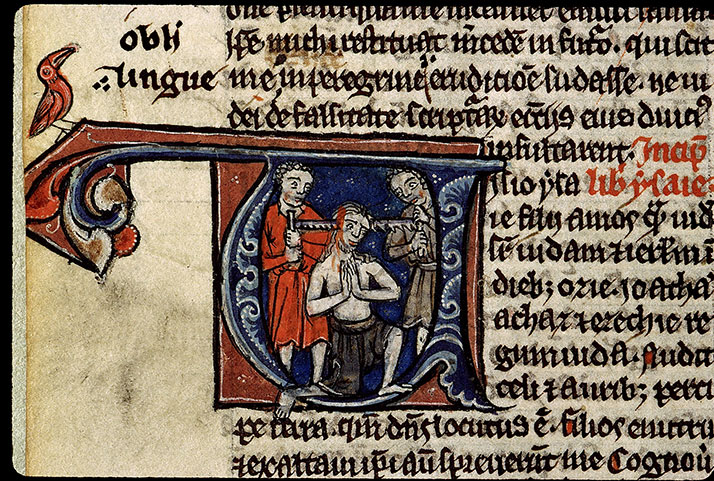 obh
lingue
ipse michi restituat m̄cedē in futo. qui scit
me in peregrine erudiciōe sudasse. ne iu
dei de falsitate scripturaꝝ ecctīs eius diuciꝰ
insultarent. Incip̄
V
sio ysa lib ysaie.
ie filii amos qͣ uid
sē iudam ⁊ ierlm̄ ī
dieb; ozie. ioatha
achaz ⁊ ezechie re
gum iuda. Audit
celi ⁊ aurib; perci
pe terra. qm̄ dn̄s locutus ē. filios enutri
⁊ exaltaui ip̄i aū spreuerūt me Cognou